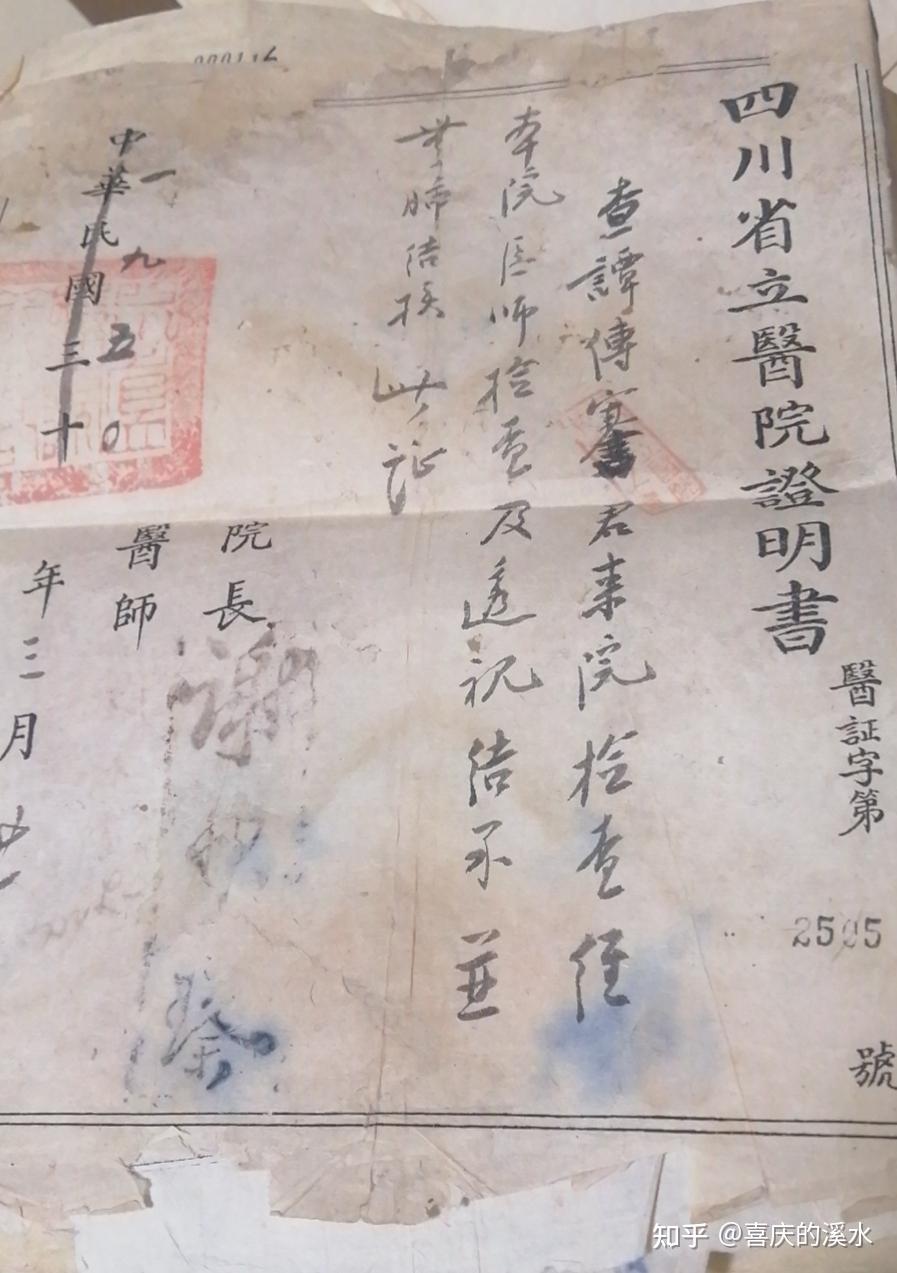 四川省立醫院證明書
醫証字第 2505 號
查譚傳寋書君来院捡查经
本院医师捡查及透视结示並
無肺结核此证
院長
醫師
中華民國三十年三月
一九五0
知乎 @喜庆的溪水